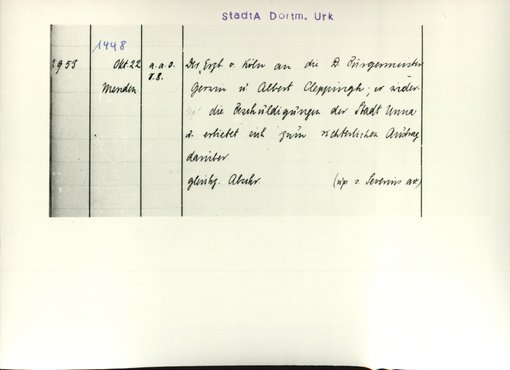 StadtA Dortm. Urk
1448
2953 Okt 22 a.a.O. Der Erzb v. Köln an die D. Bürgermeister
Menden. T.8. Gerwin u Albert Cleppingh; er wider-
legt die Beschuldigungen der Stadt Unna
u. erbietet sich zum richterlichen Austrag
darüber
gleichz. Abschr. (up s. Severins av)